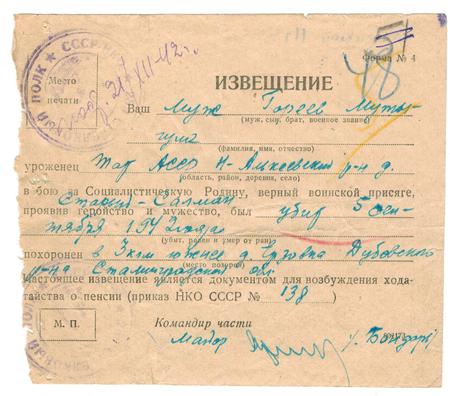 51
48
Форма № 4
СССР
ПОЛК
Место
печати
XII 42г.
ИЗВЕЩЕНИЕ
Ваш муж Гореев Мутыгулла
(муж, сын, брат, военное звание)
(фамилия, имя, отчество)
уроженец Тат АССР Н-Алкеевский р-н д.
(область, район, деревня, село)
в бою за Социалистическую Родину, верный воинской присяге,
Старый-Салман
проявив геройство и мужество, был убит 5 сен-
тября 1942 года
(убит, ранен и умер от ран)
похоронен в 3 км южнее д. Ерзовка Дубовского
(место похорон)
р-на Сталинградской обл.
Настоящее извещение является документом для возбуждения хода-
тайства о пенсии (приказ НКО СССР № 138)
М. П.
Командир части
Майор